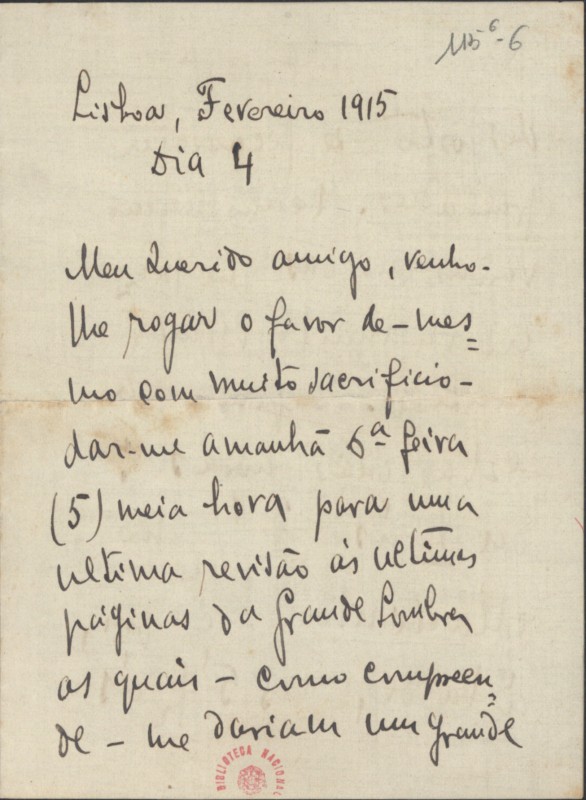 115⁶-6
Lisboa, Fevereiro 1915
Dia 4
Meu Querido amigo, venho-
lhe rogar o favor de – mes=
mo com muito sacrificio –
dar-me amanhã 6ª feira
(5) meia hora para uma
ultima revisão ás ultimas
páginas da Grande Sombra
as quais – como compreen=
de – me dariam um grande
BIBLIOTECA NACIONAL